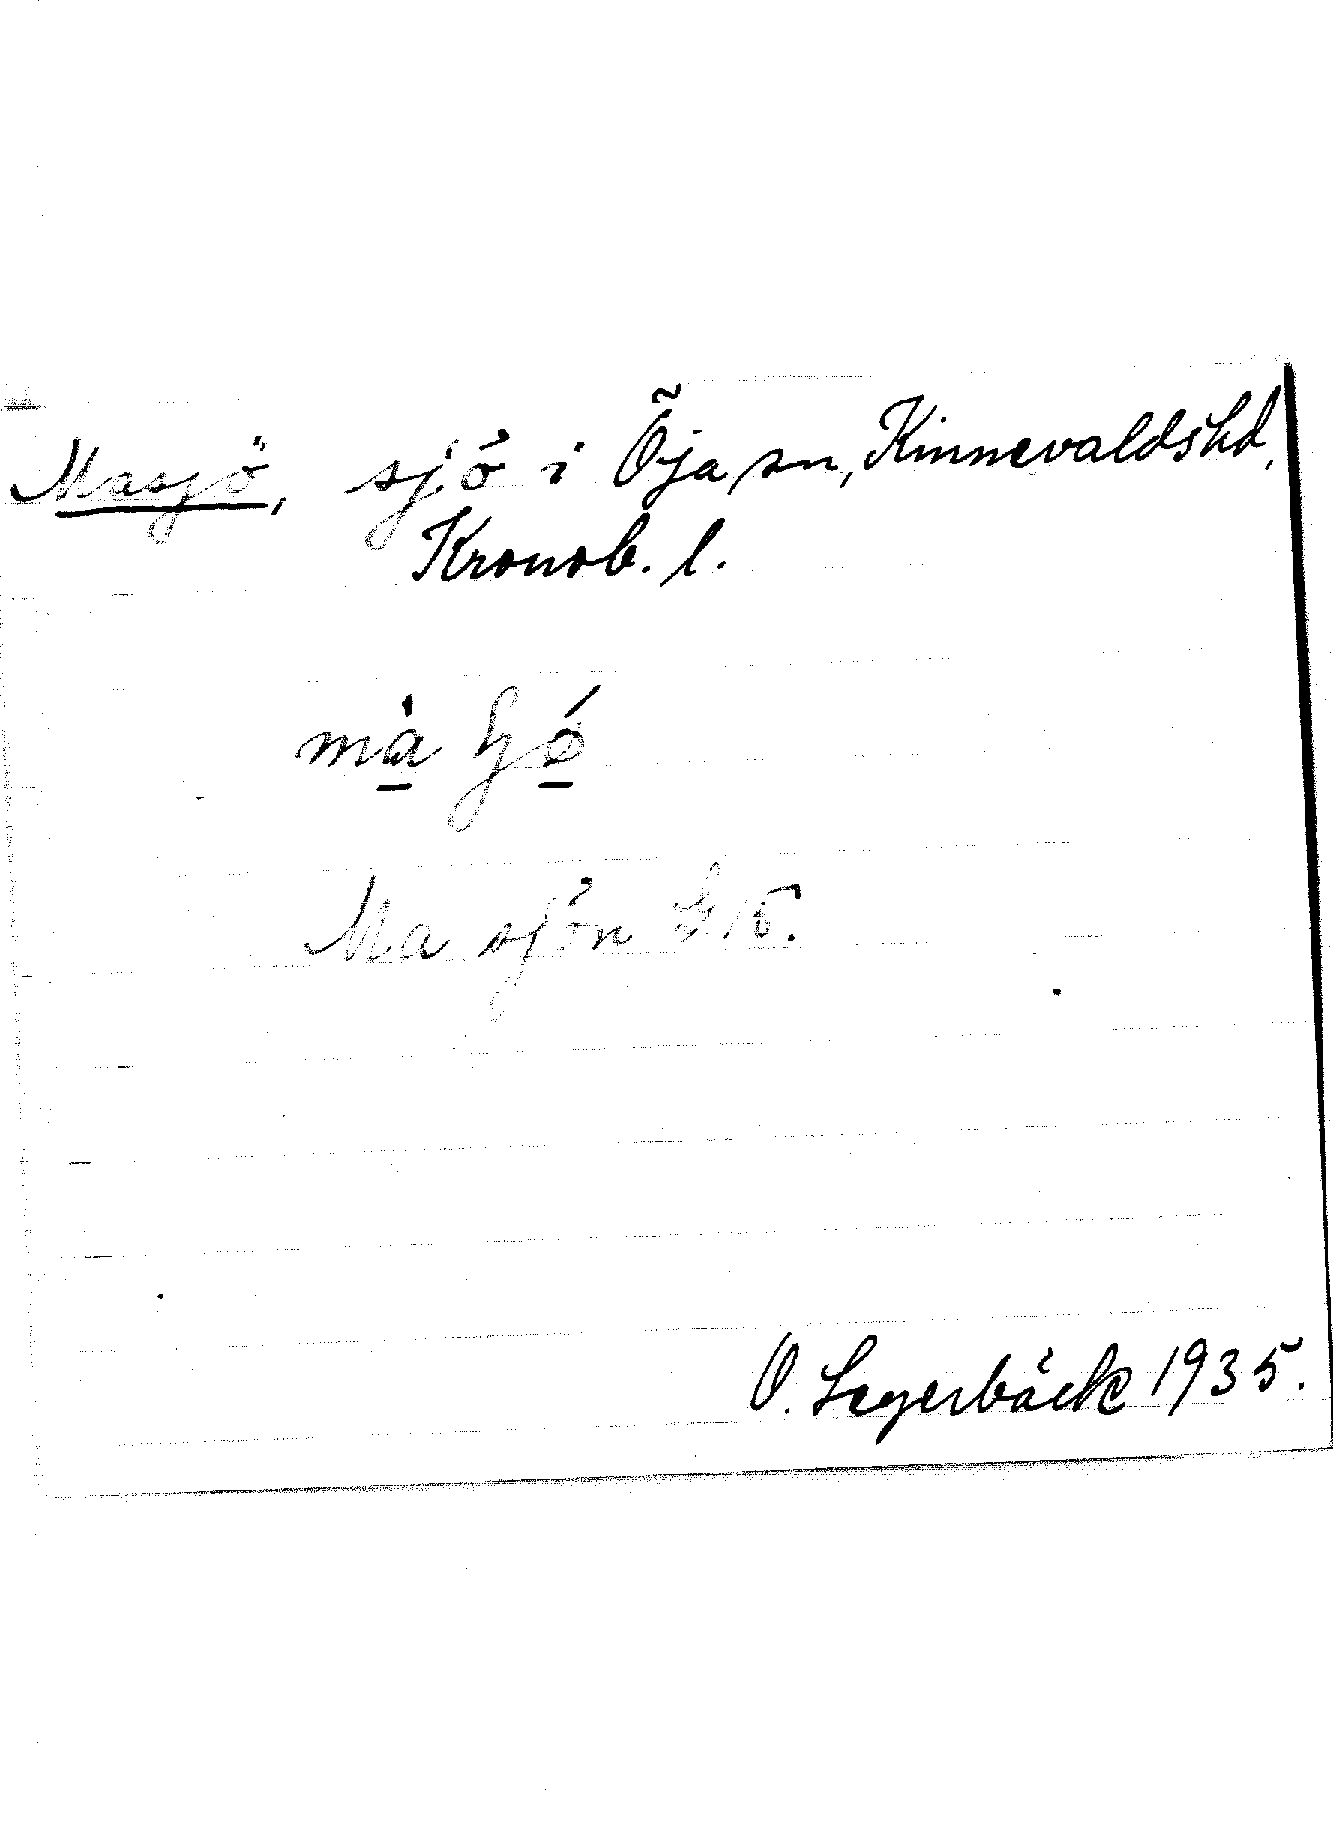 Masjö, sjö i Öja sn, Kinnevalds hd,
Kronob. l.
Masjön
O. Lagerbäck 1935.